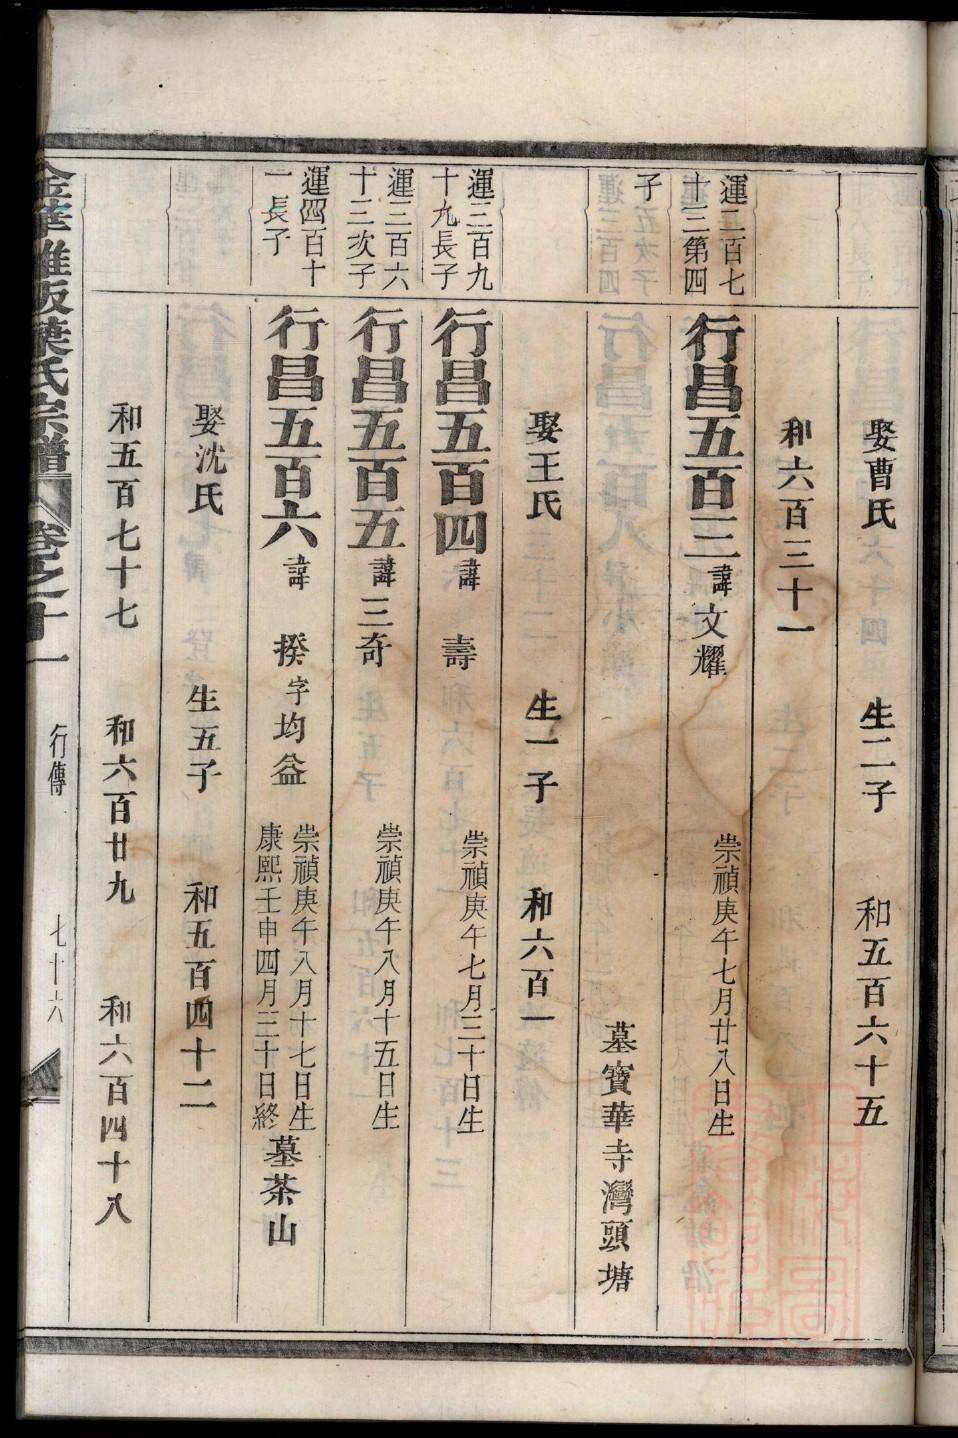 娶曹氏 生二子 和五百六十五
和六百三十一
運二百七
十三第四
子
行昌五百三 諱文耀 崇禎庚午七月廿八日生
墓寶華寺灣頭塘
娶王氏 生一子 和六百一
運三百九
十九長子
行昌五百四 諱壽 崇禎庚午七月三十日生
運三百六
十三次子
行昌五百五 諱三奇 崇禎庚午八月十五日生
運四百十
一長子
行昌五百六 諱揆字均益 崇禎庚午八月十七日生
康熙壬申四月三十日終 墓茶山
娶沈氏 生五子 和五百四十二
和五百七十七 和六百廿九 和六百四十八
葉氏宗譜 卷之十一 行傳 七十六